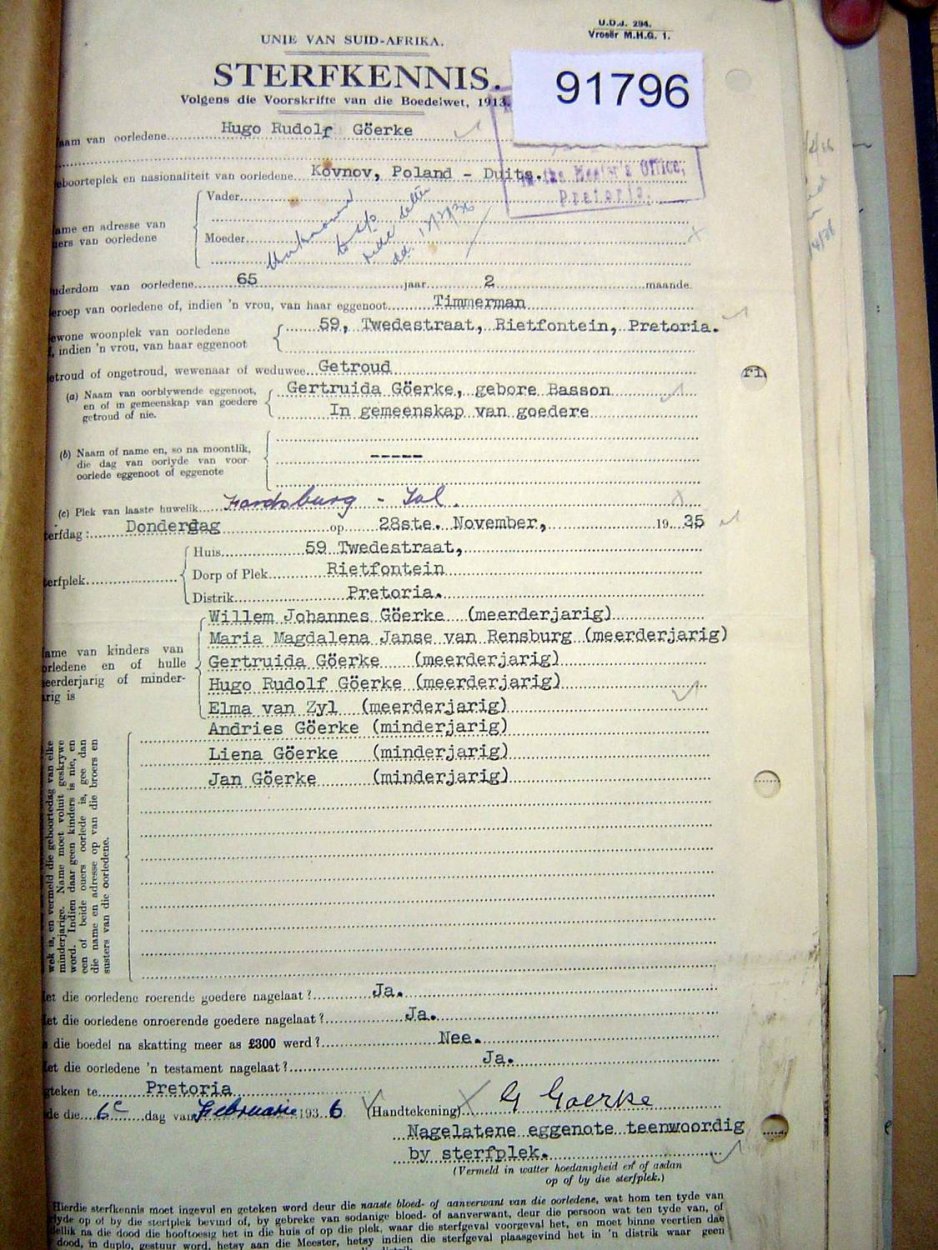 U.D.J. 294.
Vroeër M.H.G. 1.
UNIE VAN SUID-AFRIKA.
STERFKENNIS.
91796
Volgens die Voorskrifte van die Boedelwet, 1913.
aam van oorledene Hugo Rudolf Göerke
the Master's Office,
Pretoria.
eboorteplek en nasionaliteit van oorledene Kovnov, Poland - Duits.
Vader
ame en adresse van
ers van oorledene
Moeder
Unknown
dd.
uderdom van oorledene 65 jaar 2 maande.
eroep van oorledene of, indien 'n vrou, van haar eggenoot Timmerman
ewone woonplek van oorledene
f, indien 'n vrou, van haar eggenoot
59, Twedestraat, Rietfontein, Pretoria.
etroud of ongetroud, wewenaar of weduwee Getroud
(a) Naam van oorblywende eggenoot,
en of in gemeenskap van goedere
getroud of nie.
Gertruida Göerke, gebore Basson
In gemeenskap van goedere
(b) Naam of name en, so na moontlik,
die dag van oorlyde van voor-
oorlede eggenoot of eggenote
-----
(c) Plek van laaste huwelik
terfdag: Donderdag op 28ste. November, 1935
terfplek
Huis 59 Twedestraat,
Dorp of Plek Rietfontein
Distrik Pretoria.
ame van kinders van
orledene en of hulle
eerderjarig of minder-
arig is
Willem Johannes Göerke (meerderjarig)
Maria Magdalena Janse van Rensburg (meerderjarig)
Gertruida Göerke (meerderjarig)
Hugo Rudolf Göerke (meerderjarig)
Elma van Zyl (meerderjarig)
Andries Göerke (minderjarig)
Liena Göerke (minderjarig)
Jan Göerke (minderjarig)
wek is, en vermeld die geboortedag van elke
minderjarige. Name moet voluit geskrywe
word. Indien daar geen kinders is nie, en
een of beide ouers oorlede is, gee dan
die name en adresse op van die broers en
susters van die oorledene.
et die oorledene roerende goedere nagelaat? Ja.
et die oorledene onroerende goedere nagelaat? Ja.
s die boedel na skatting meer as £300 werd? Nee.
et die oorledene 'n testament nagelaat? Ja.
geteken te Pretoria
de die 6e dag van Februarie 1936 (Handtekening) G Goerke
Nagelatene eggenote teenwoordig
by sterfplek.
(Vermeld in watter hoedanigheid en of asdan
op of by die sterfplek.)
Hierdie sterfkennis moet ingevul en geteken word deur die naaste bloed- of aanverwant van die oorledene, wat hom ten tyde van
lyde op of by die sterfplek bevind of, by gebreke van sodanige bloed- of aanverwant, deur die persoon wat ten tyde van, of
dellik na die dood die hooftoesig het in die huis of op die plek, waar die sterfgeval voorgeval het, en moet binne veertien dae
dood, in duplo, gestuur word, hetsy aan die Meester, hetsy indien die sterfgeval plaasgevind het in 'n distrik waar geen